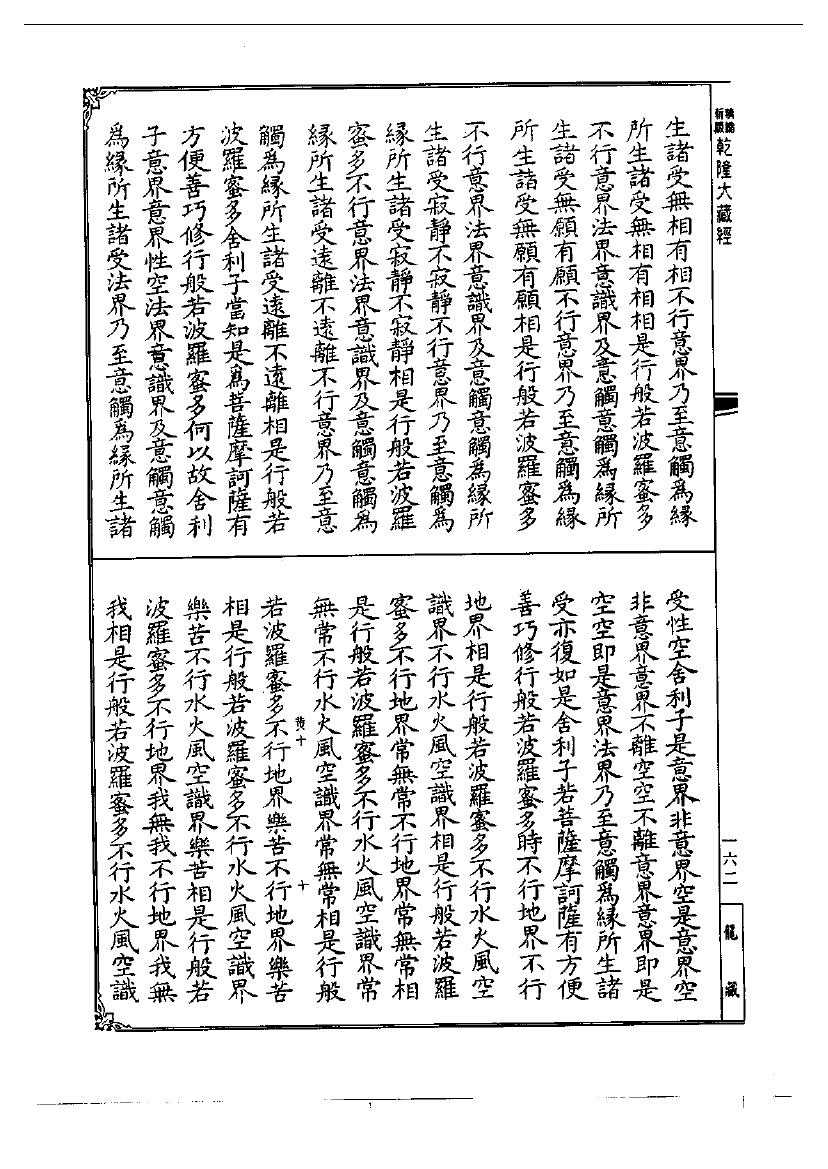 乾隆大藏經
生諸受無相有相不行意界乃至意觸為緣
所生諸受無相有相相是行般若波羅蜜多
不行意界法界意識界及意觸意觸為緣所
生諸受無願有願不行意界乃至意觸為緣
所生諸受無願有願相是行般若波羅蜜多
不行意界法界意識界及意觸意觸為緣所
生諸受寂靜不寂靜不行意界乃至意觸為
緣所生諸受寂靜不寂靜相是行般若波羅
蜜多不行意界法界意識界及意觸意觸為
緣所生諸受遠離不遠離不行意界乃至意
觸為緣所生諸受遠離不遠離相是行般若
波羅蜜多舍利子當知是為菩薩摩訶薩有
方便善巧修行般若波羅蜜多何以故舍利
子意界意界性空法界意識界及意觸意觸
為緣所生諸受法界乃至意觸為緣所生諸
受性空舍利子是意界非意界空是意界空
非意界意界不離空空不離意界意界即是
空空即是意界法界乃至意觸為緣所生諸
受亦復如是舍利子若菩薩摩訶薩有方便
善巧修行般若波羅蜜多時不行地界不行
地界相是行般若波羅蜜多不行水火風空
識界不行水火風空識界相是行般若波羅
蜜多不行地界常無常不行地界常無常相
是行般若波羅蜜多不行水火風空識界常
無常不行水火風空識界常無常相是行般
黃十 十
若波羅蜜多不行地界樂苦不行地界樂苦
相是行般若波羅蜜多不行水火風空識界
樂苦不行水火風空識界樂苦相是行般若
波羅蜜多不行地界我無我不行地界我無
我相是行般若波羅蜜多不行水火風空識
一六二
龍藏